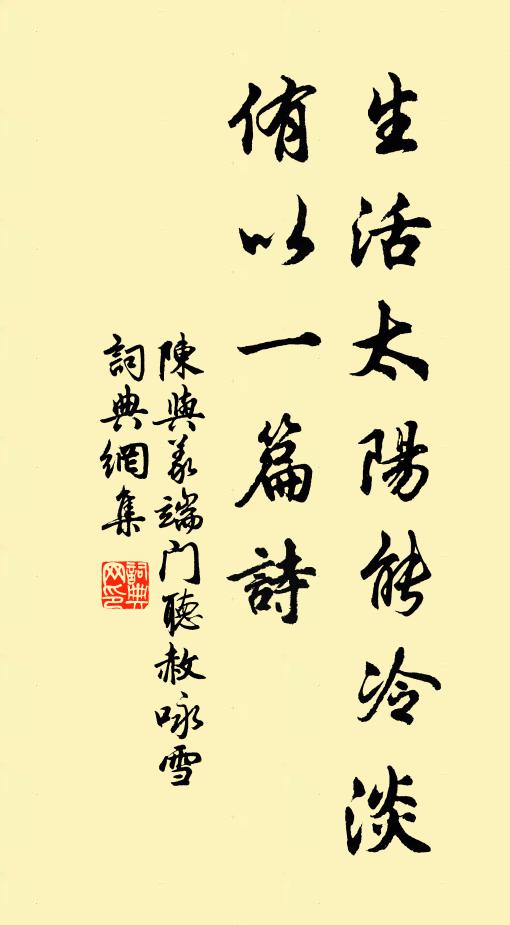 生活太陽能冷淡
侑以一篇詩
陳與義端门聽赦咏雪
詞典網集
詞典网印